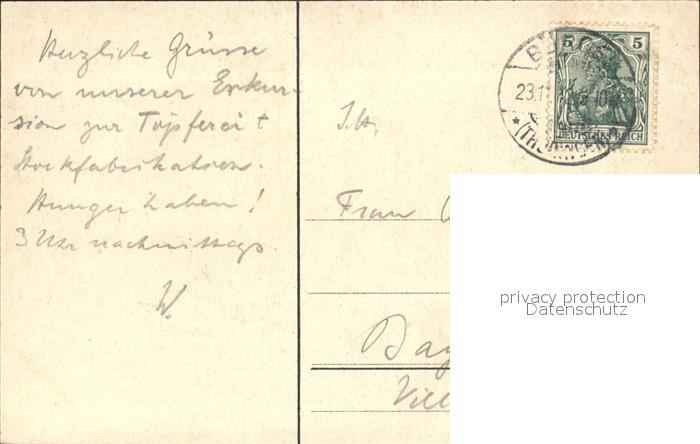 Herzliche Grüsse
von unserer Exkur-
sion zur Töpferei +
Stockfabrikation.
Hunger haben!
3 Uhr nachmittags.
W.
5 5
23.11.
DEUTSCHES REICH
* (THÜRINGEN)
I. H.
Frau
privacy protection
Datenschutz